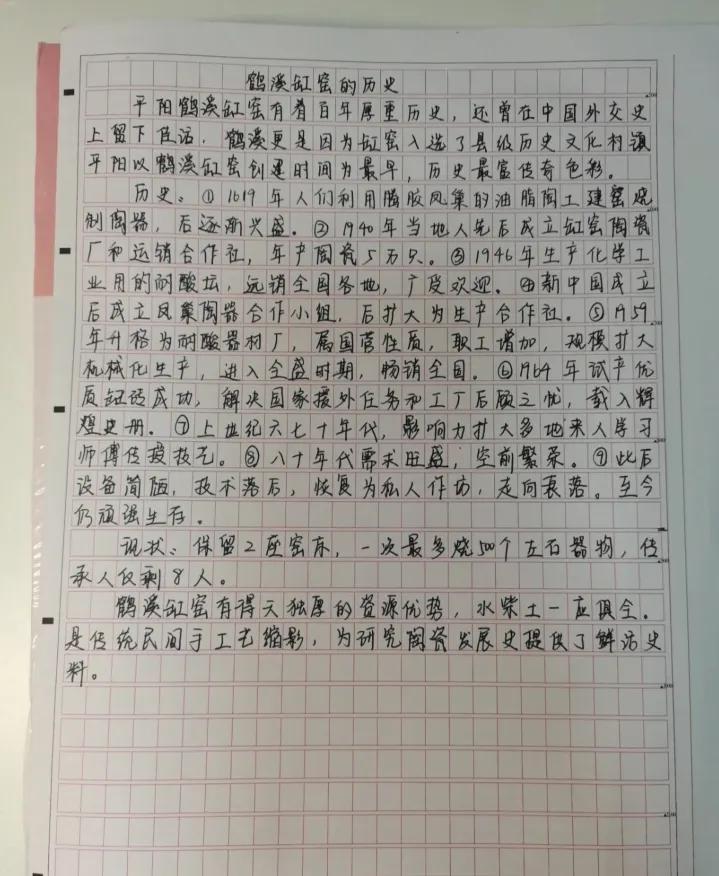 鹤溪缸窑的历史
平阳鹤溪缸窑有着百年厚重历史，还曾在中国外交史
上留下佳话，鹤溪更是因为缸窑入选了县级历史文化村镇
平阳以鹤溪缸窑创建时间为最早，历史最富传奇色彩。
历史：①1619年人们利用腾胶凤巢的油脂陶土建窑烧
制陶器，后逐渐兴盛。②1940年当地人先后成立缸窑陶瓷
厂和运销合作社，年产陶瓷5万只。③1946年生产化学工
业用的耐酸坛，远销全国各地，广受欢迎。④新中国成立
后成立凤巢陶器合作小组，后扩大为生产合作社。⑤1959
年升格为耐酸器材厂，属国营性质，职工增加，规模扩大
机械化生产，进入全盛时期，畅销全国。⑥1964年试产优
质缸砖成功，解决国家援外任务和工厂后顾之忧，载入辉
煌史册。⑦上世纪六七十年代，影响力扩大多地来人学习
师傅传授技艺。⑧八十年代需求旺盛，空前繁荣。⑨此后
设备简陋，技术落后，恢复为私人作坊，走向衰落。至今
仍顽强生存。
现状：保留2座窑床，一次最多烧500个左右器物，传
承人仅剩8人。
鹤溪缸窑有得天独厚的资源优势，水柴土一应俱全。
是传统民间手工艺缩影，为研究陶瓷发展史提供了鲜活史
料。